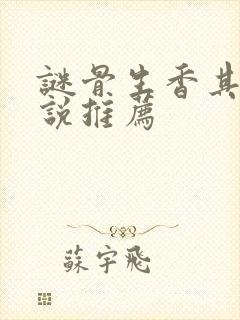 謎骨生香其
說推薦
蘇宇飛